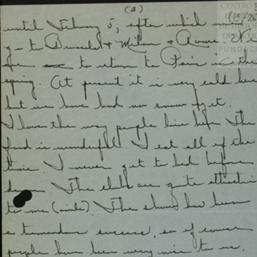 (2)
until February 5, after which
to Brussels + Milan +
to return to Paris in the
spring. At present it is very cold here
but we have had no snow yet.
I love the way people live here. The
food is wonderful. I eat all of the
time. I never get to bed before
The clubs are quite attentive
to me (nude). The show has been
a tremendous success, so of course
people have been very nice to me.